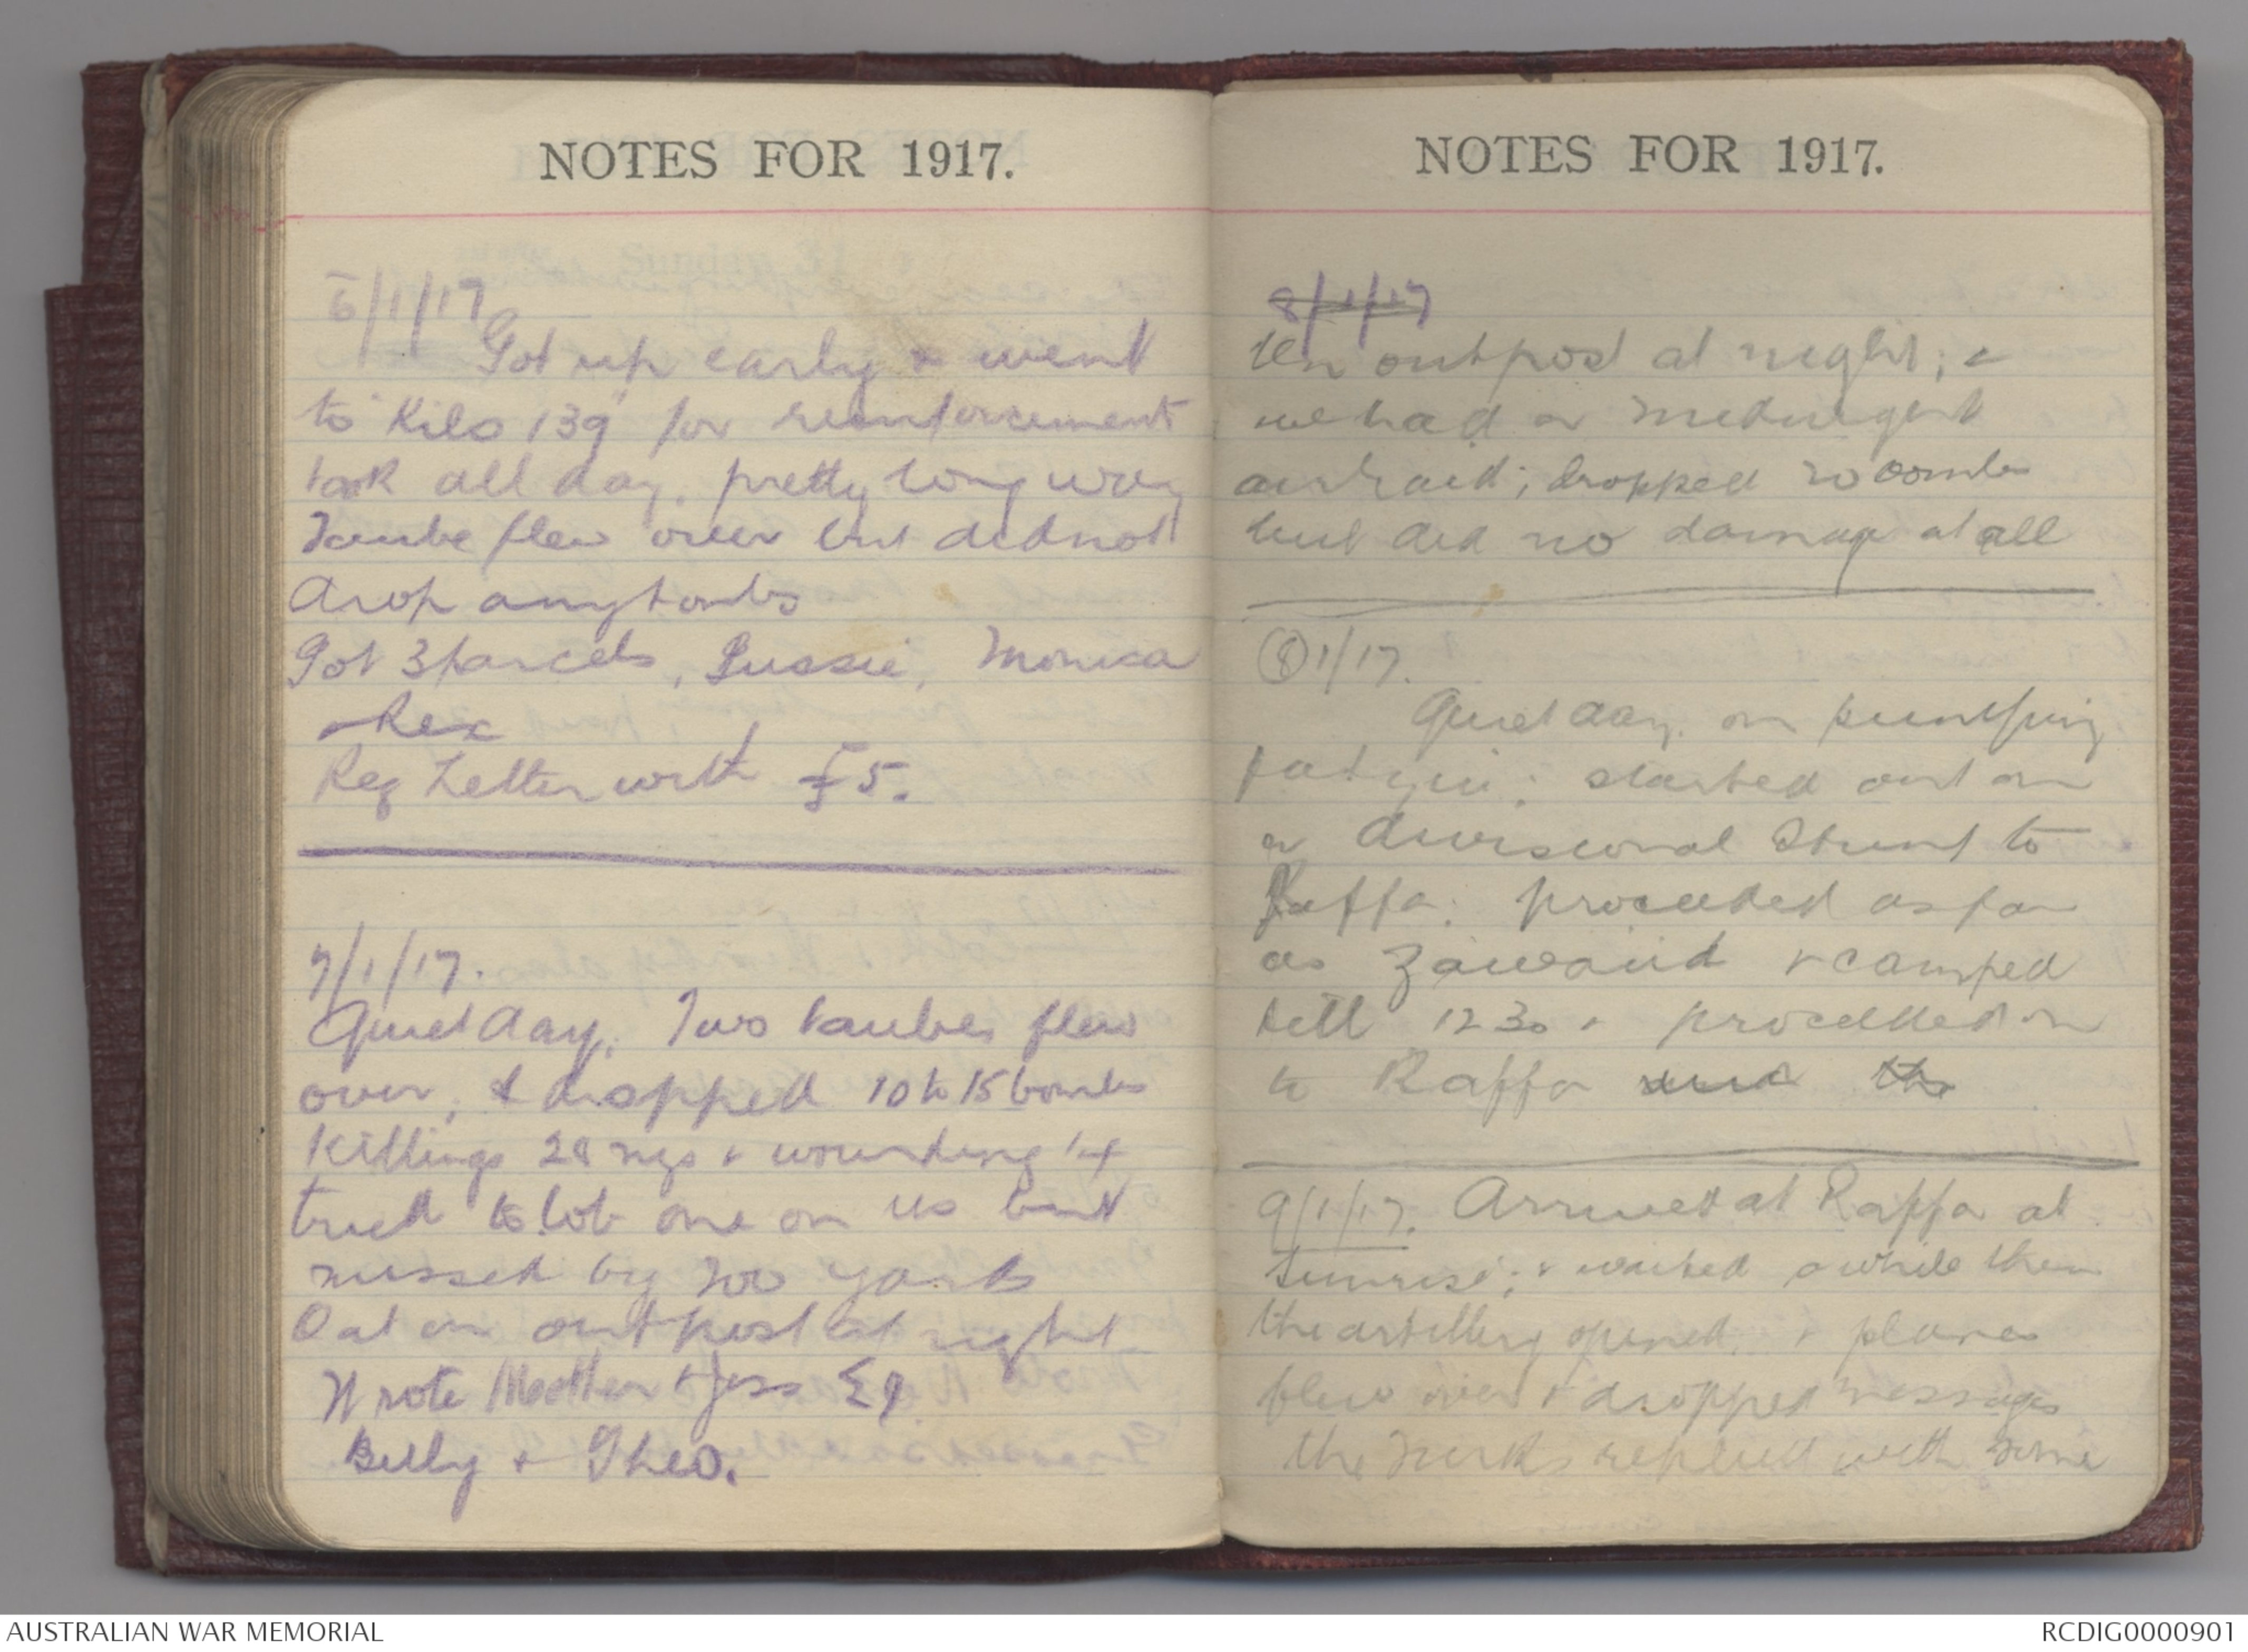 NOTES FOR 1917.
6/1/17
Got up early & went
to "Kilo 139" for reinforcement
took all day. pretty long way
Taube flew over but did not
drop any bombs
Got 3 parcels, Pussie, Monica
Rex
Reg Letter with £5.
7/1/17.
Quiet day. Two taubes flew
over, & dropped 10 to 15 bombs
Killings 28 & wounding 14
tried to lob one on us but
missed by 200 yards
Out on outpost at night
Wrote Mother & Jess
Billy & Theo.
NOTES FOR 1917.
8/1/17
On outpost at night; &
we had a midnight
airraid; dropped 20 bombs
but did no damage at all
8/1/17.
Quiet day. on pumping
fatigue; started out on
a divisional Stunt to
Raffa; proceeded as far
as Zawaiid & camped
till 12 30 & proceeded on
to Raffa and the
9/1/17. Arrived at Raffa at
sunrise; & waited awhile then
the artillery opened, & planes
flew over & dropped messages
the Turks replied with some
AUSTRALIAN WAR MEMORIAL
RCDIG0000901